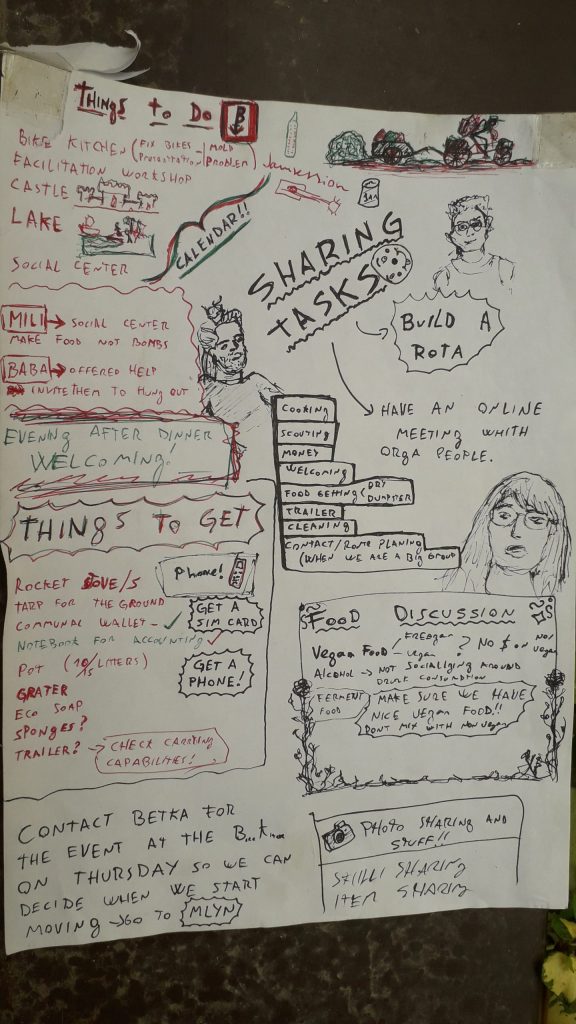 THINGS TO DO
B
BIKE KITCHEN (FIX BIKES - MOLD
PRESENTATION PROBLEM)
FACILITATION WORKSHOP
Jamsession
CASTLE
LAKE
CALENDAR!!
SOCIAL CENTER
MILI → SOCIAL CENTER
MAKE FOOD NOT BOMBS
BABA → OFFERED HELP
INVITE THEM TO HUNG OUT
EVENING AFTER DINNER
WELCOMING!
SHARING
TASKS
BUILD A
ROTA
HAVE AN ONLINE
MEETING WHITH
ORGA PEOPLE.
COOKING
SCOUTING
MONEY
WELCOMING
FOOD GETTING (DRY
DUMPSTER
TRAILER
CLEANING
CONTACT/ROUTE PLANING
(WHEN WE ARE A BIG GROUP)
THINGS TO GET
Phone!
ROCKET STOVE/S
TARP FOR THE GROUND
COMMUNAL WALLET - ✓
GET A
SIM CARD
NOTEBOOK FOR ACCOUNTING ✓
POT (10/15 LITERS)
GET A
PHONE!
GRATER
ECO SOAP
SPONGES?
TRAILER? → CHECK CARRYING
CAPABILITIES!
FOOD DISCUSSION
VEGAN FOOD - FREEGAN ? NO $ ON NON
VEGAN VEGAN
ALCOHOL → NOT SOCIALIZING AROUND
DRUNK CONSUMPTION
FERMENT
FOOD
MAKE SURE WE HAVE
NICE VEGAN FOOD!!
DONT MIX WITH NON VEGAN
CONTACT BETKA FOR
THE EVENT AT THE
ON THURSDAY SO WE CAN
DECIDE WHEN WE START
MOVING → GO TO MLYN
PHOTO SHARING AND
STUFF!!
SKILL SHARING
ITEM SHARING